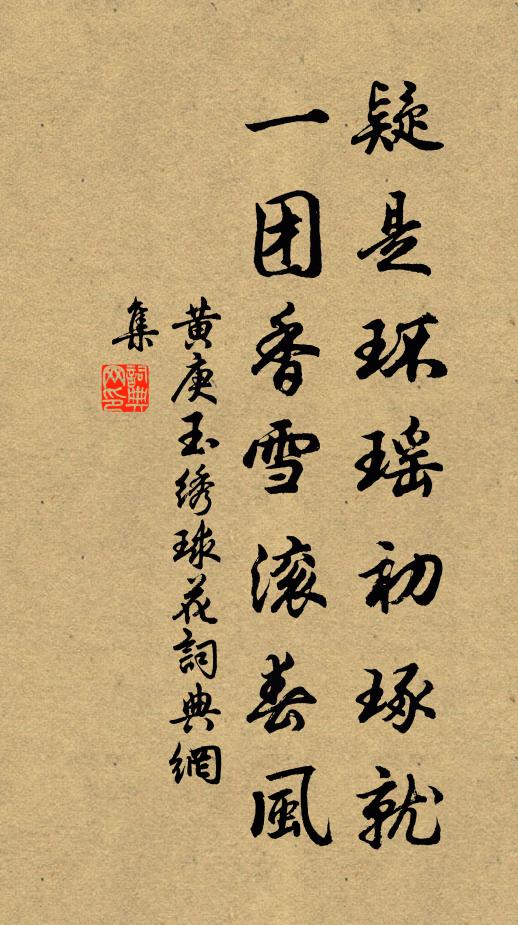 疑是环瑶初琢就
一团香雪滚春风
黄庚玉绣球花詞典網
集
詞典
网印